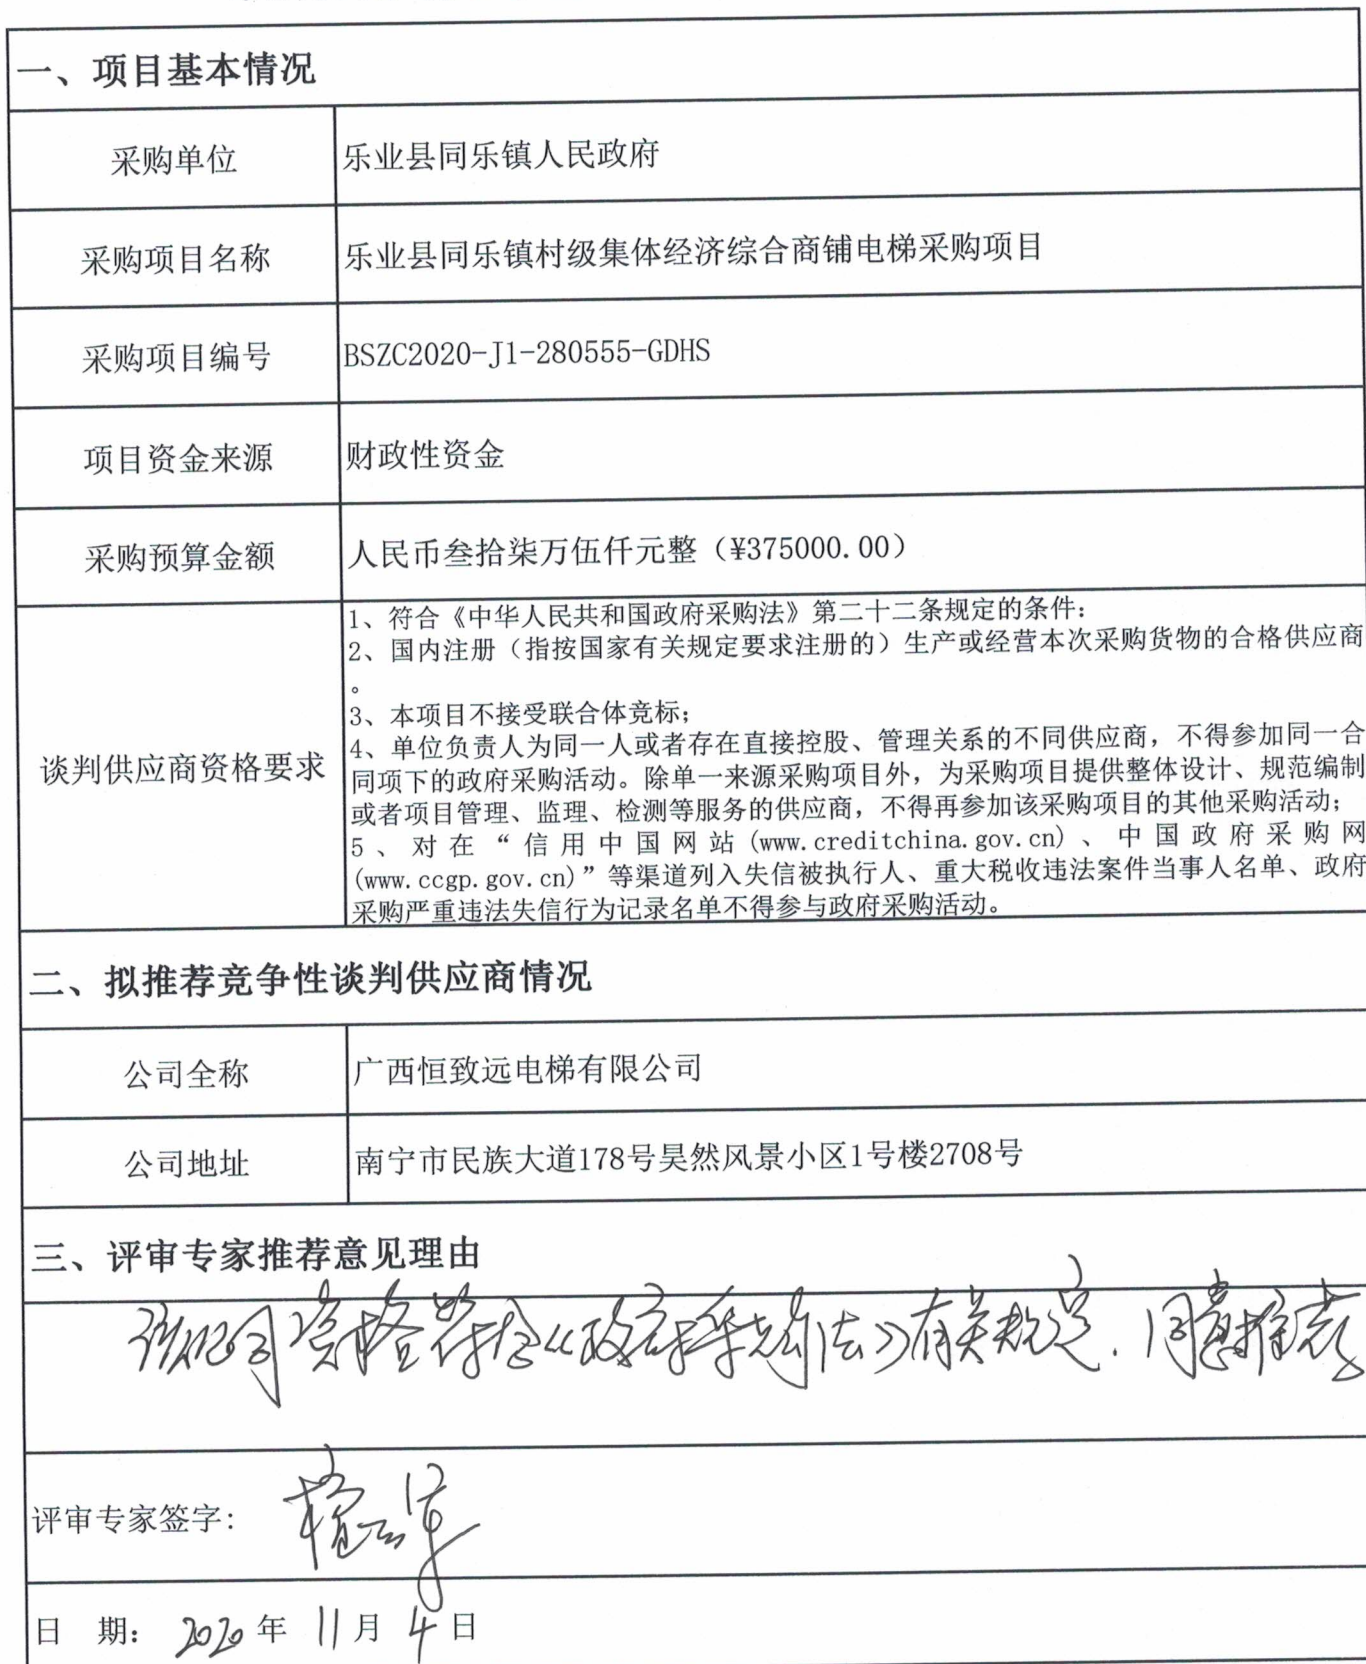 一、项目基本情况
采购单位
乐业县同乐镇人民政府
采购项目名称
乐业县同乐镇村级集体经济综合商铺电梯采购项目
采购项目编号
BSZC2020-J1-280555-GDHS
项目资金来源
财政性资金
采购预算金额
人民币叁拾柒万伍仟元整（¥375000.00）
谈判供应商资格要求
1、符合《中华人民共和国政府采购法》第二十二条规定的条件：
2、国内注册（指按国家有关规定要求注册的）生产或经营本次采购货物的合格供应商
。
3、本项目不接受联合体竞标；
4、单位负责人为同一人或者存在直接控股、管理关系的不同供应商，不得参加同一合
同项下的政府采购活动。除单一来源采购项目外，为采购项目提供整体设计、规范编制
或者项目管理、监理、检测等服务的供应商，不得再参加该采购项目的其他采购活动；
5、对在“信用中国网站(www.creditchina.gov.cn)、中国政府采购网
(www.ccgp.gov.cn)”等渠道列入失信被执行人、重大税收违法案件当事人名单、政府
采购严重违法失信行为记录名单不得参与政府采购活动。
二、拟推荐竞争性谈判供应商情况
公司全称
广西恒致远电梯有限公司
公司地址
南宁市民族大道178号昊然风景小区1号楼2708号
三、评审专家推荐意见理由
该公司资格符合《政府采购法》有关规定，同意推荐
评审专家签字：
日 期： 2020年 11月 4日